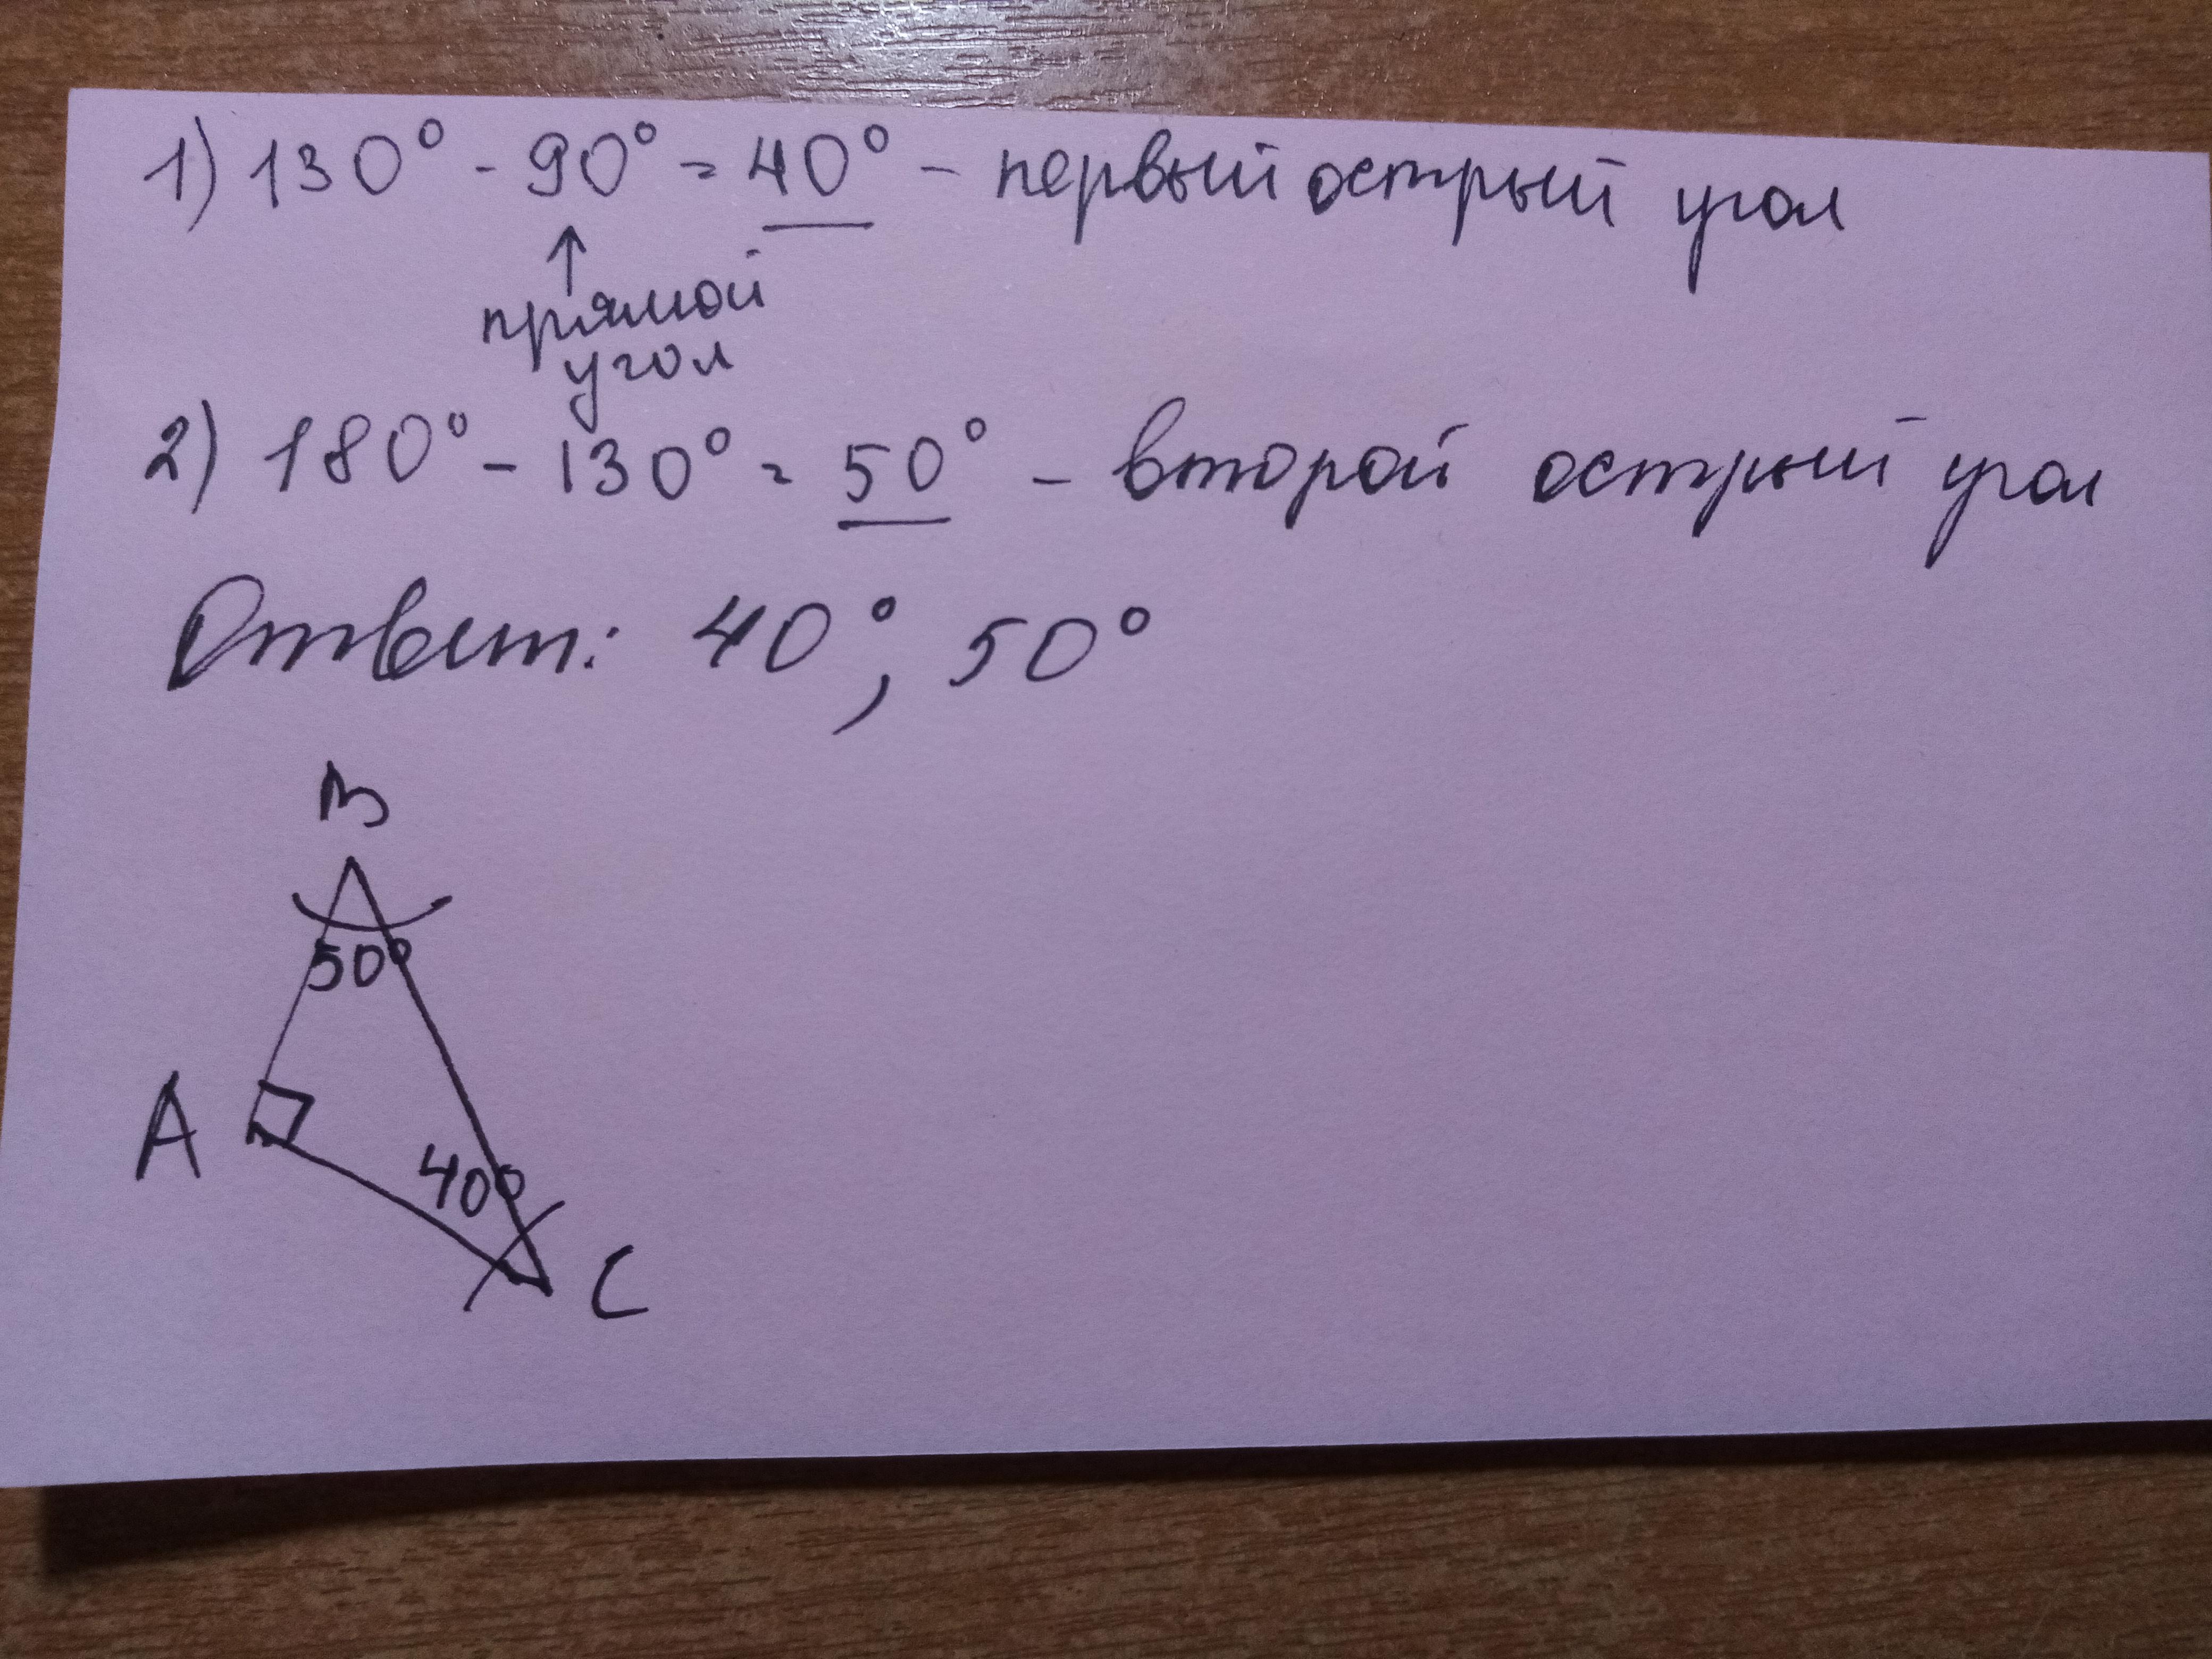 1) 130° - 90° = 40° - первый острый угол
↑
прямой
угол
2) 180° - 130° = 50° - второй острый угол
Ответ: 40°, 50°
B
50°
A
40°
C